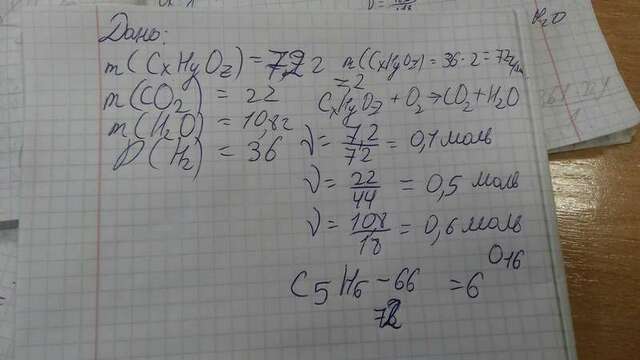 Дано:
m(CxHyOz)=7,2г
m(CO2) = 22
m(H2O) = 10,82
D(H2) = 36
m(CxHyOz)=36·2=72г/м
CxHyOz+O2→CO2+H2O
ν=7,2/72=0,1моль
ν=22/44=0,5 моль
ν=10,8/18=0,6моль
O16
C5H6-66 =6
72
H2O